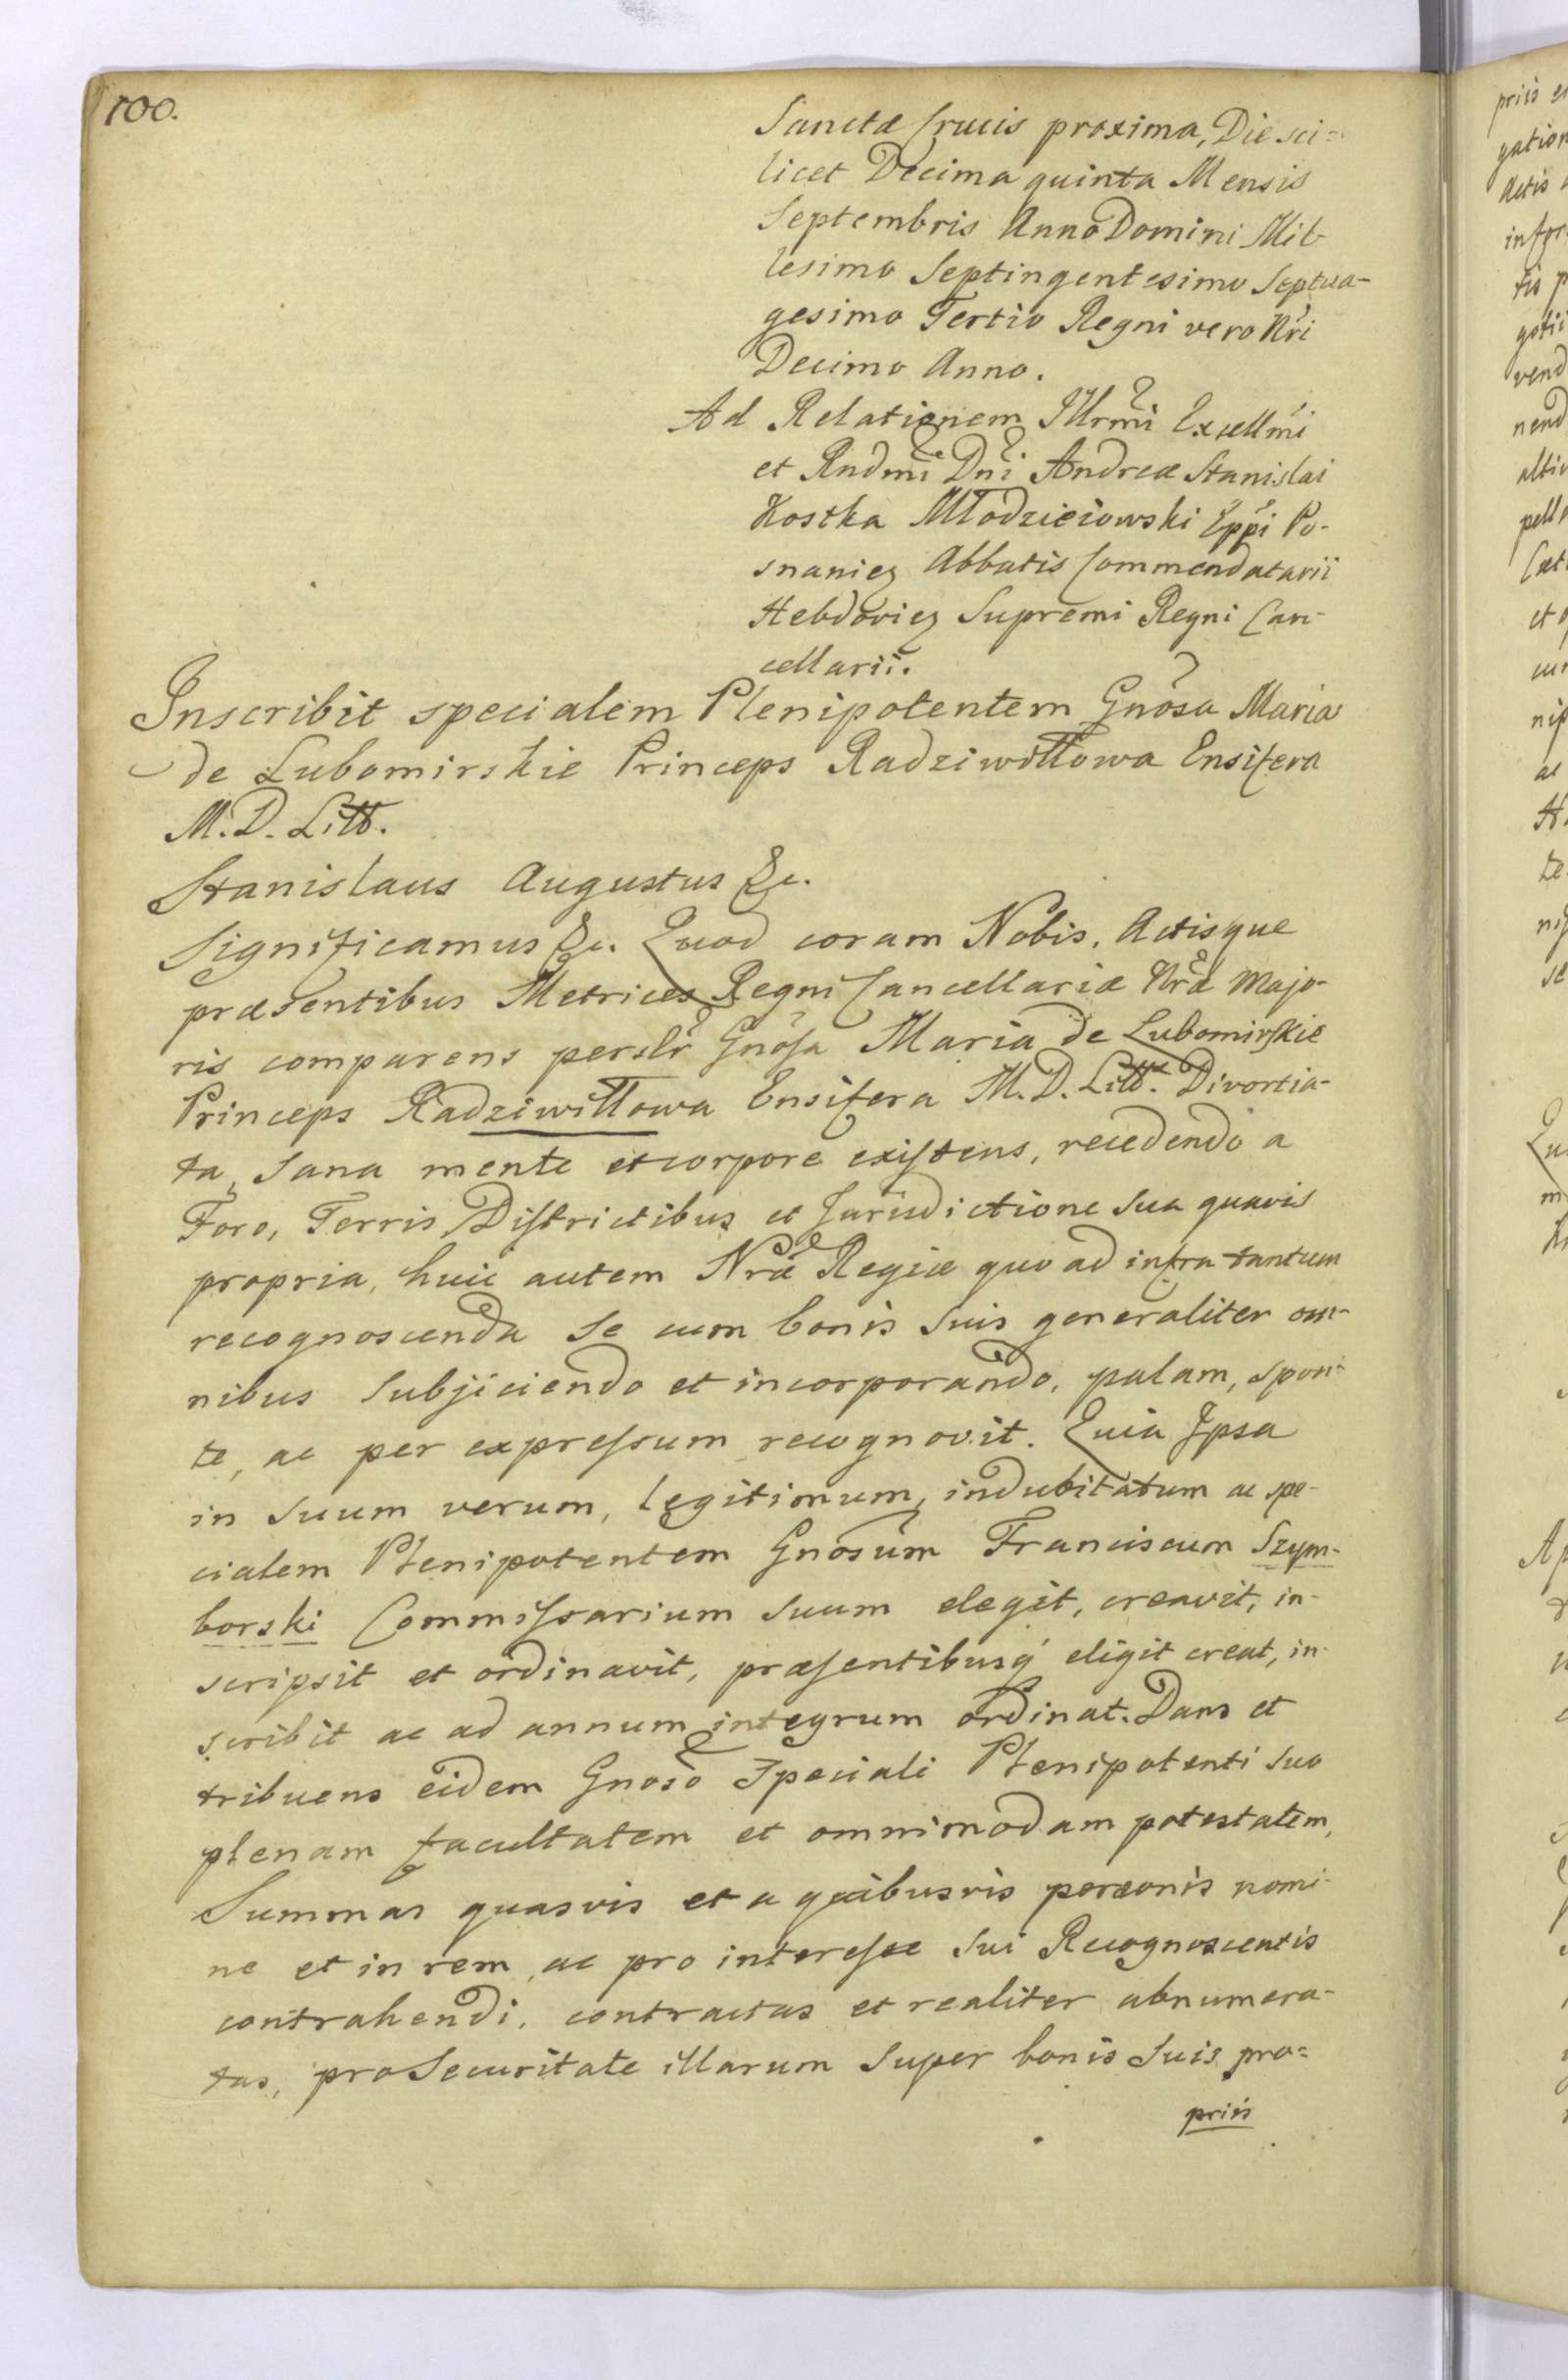 100.
Sanctæ Crucis proxima, Die sci=
licet Decima quinta Mensis
Septembris Anno Domini Mil-
lesimo Septingentesimo Septua-
gesimo Tertio Regni vero Nri
Decimo Anno.
Ad Relationem Illrmi Excellmi
et Rndmi Dni Andreæ Stanislai
Kostka Młodzieiowski Eppi Po-
snaniey Abbatis Commendatarii
Hebdoviey Supremi Regni Can-
cellarii.
Inscribit specialem Plenipotentem Gnosa Maria
de Lubomirskie Princeps Radziwiłłowa Ensifera
M. D. Litt.
Stanislaus Augustus &c.
Significamus &c. Quod coram Nobis, Actisque
præsentibus Metrices Regni Cancellariæ Nræ Majo-
ris comparens persltr Gnosa Maria de Lubomirskie
Princeps Radziwiłłowa Ensifera M. D. Litt. Divortia-
ta, Sana mente et corpore existens, recedendo a
Foro, Terris, Districtibus et Jurisdictione Sua quavis
propria, huic autem Nræ Regiæ quo ad infra tantum
recognoscenda Se cum bonis Suis generaliter om-
nibus Subjiciendo et incorporando, palam, spon-
te, ac per expressum recognovit. Quia Ipsa
in Suum verum, legitimum, indubitatum ac spe-
cialem Plenipotentem Gnosum Franciscum Szym-
borski Commissarium Suum elegit, creavit, in-
scripsit et ordinavit, præsentibusq eligit creat, in-
scribit ac ad annum integrum ordinat. Dans et
tribuens eidem Gnoso Speciali Plenipotenti Suo
plenam facultatem et omnimodam potestatem,
Summas quasvis et a quibusvis personis nomi-
ne et in rem, ac pro interesse Sui Recognoscentis
contrahendi, contractas et realiter abnumera-
tas, pro Securitate illarum Super bonis Suis pro=
priis